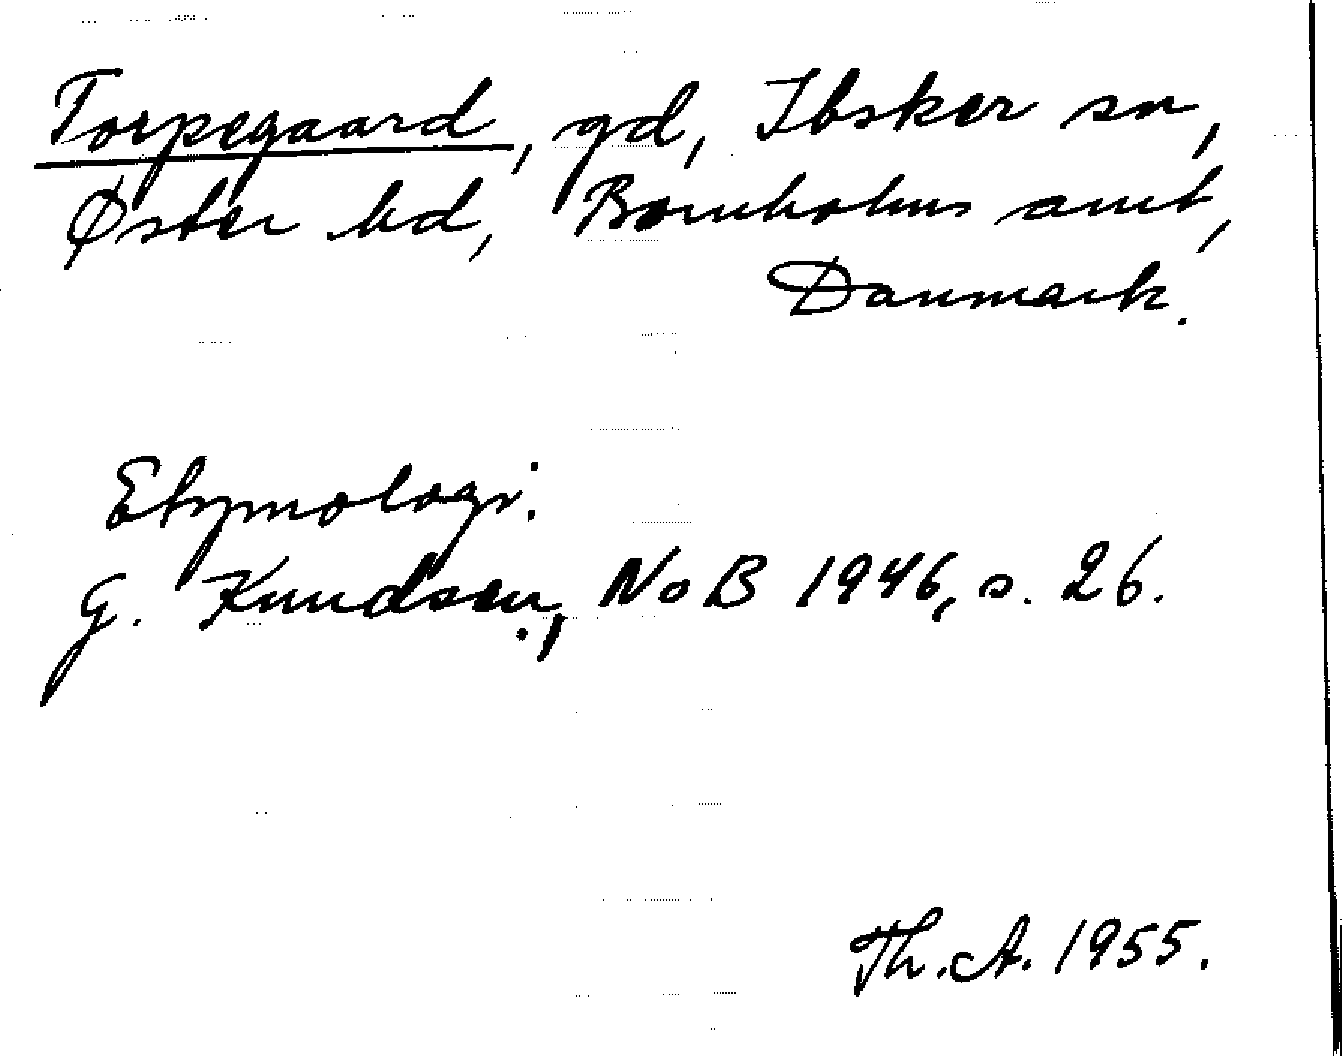 Torpegaard, gd, Ibsker sn,
Øster hd, Bornholms amt,
Danmark.
Etymologi:
G. Knudsen, NoB 1946, s. 26.
Th. A. 1955.